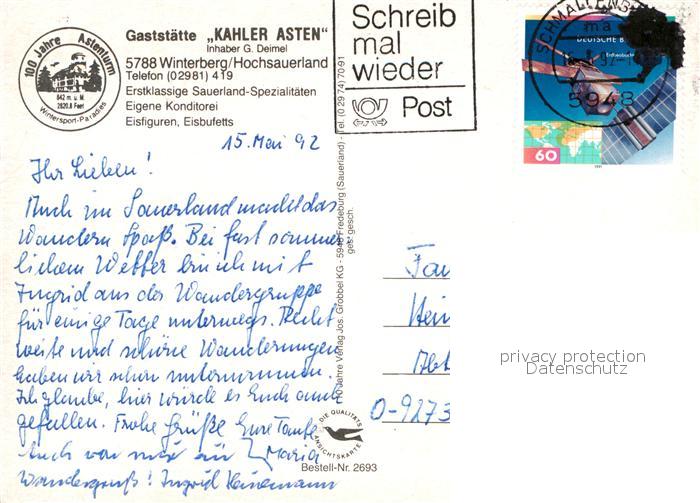 Gaststätte „KAHLER ASTEN"
Inhaber G. Deimel
5788 Winterberg/Hochsauerland
Telefon (02981) 419
Erstklassige Sauerland-Spezialitäten
Eigene Konditorei
Eisfiguren, Eisbufetts
100 Jahre Astenturm
842 m. ü. M.
Wintersport-Paradies
Schreib
mal
wieder
Post
SCHMALLENB
5948
DEUTSCHE B
60
15. Mai 92
Ihr Lieben!
Auch im Sauerland macht das
Wandern Spaß. Bei fast sommer-
lichem Wetter bin ich mit
Ingrid aus der Wandergruppe
für einige Tage unterwegs. Recht
weite und schöne Wanderungen
haben wir schon unternommen.
Ich glaube, hier würde es Euch auch
gefallen. Frohe Grüße Eure Tante
Maria
Auch von mir ein
Wandergruß! Ingrid
Verlag Jos. Grobbel KG - 5948 Fredeburg (Sauerland) - Tel. (0 29 74) 70 91
ges. gesch.
O-9273
privacy protection
Datenschutz
DIE QUALITÄTS
ANSICHTSKARTE
Bestell-Nr. 2693